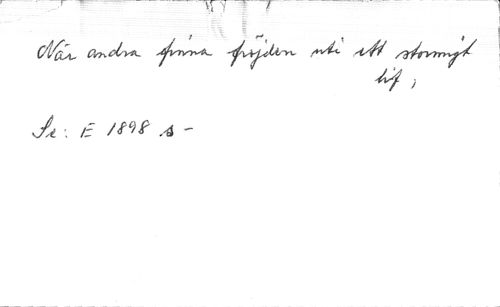 När andra finna fröjden uti ett stormigt
lif,
Se: E 1898 s -